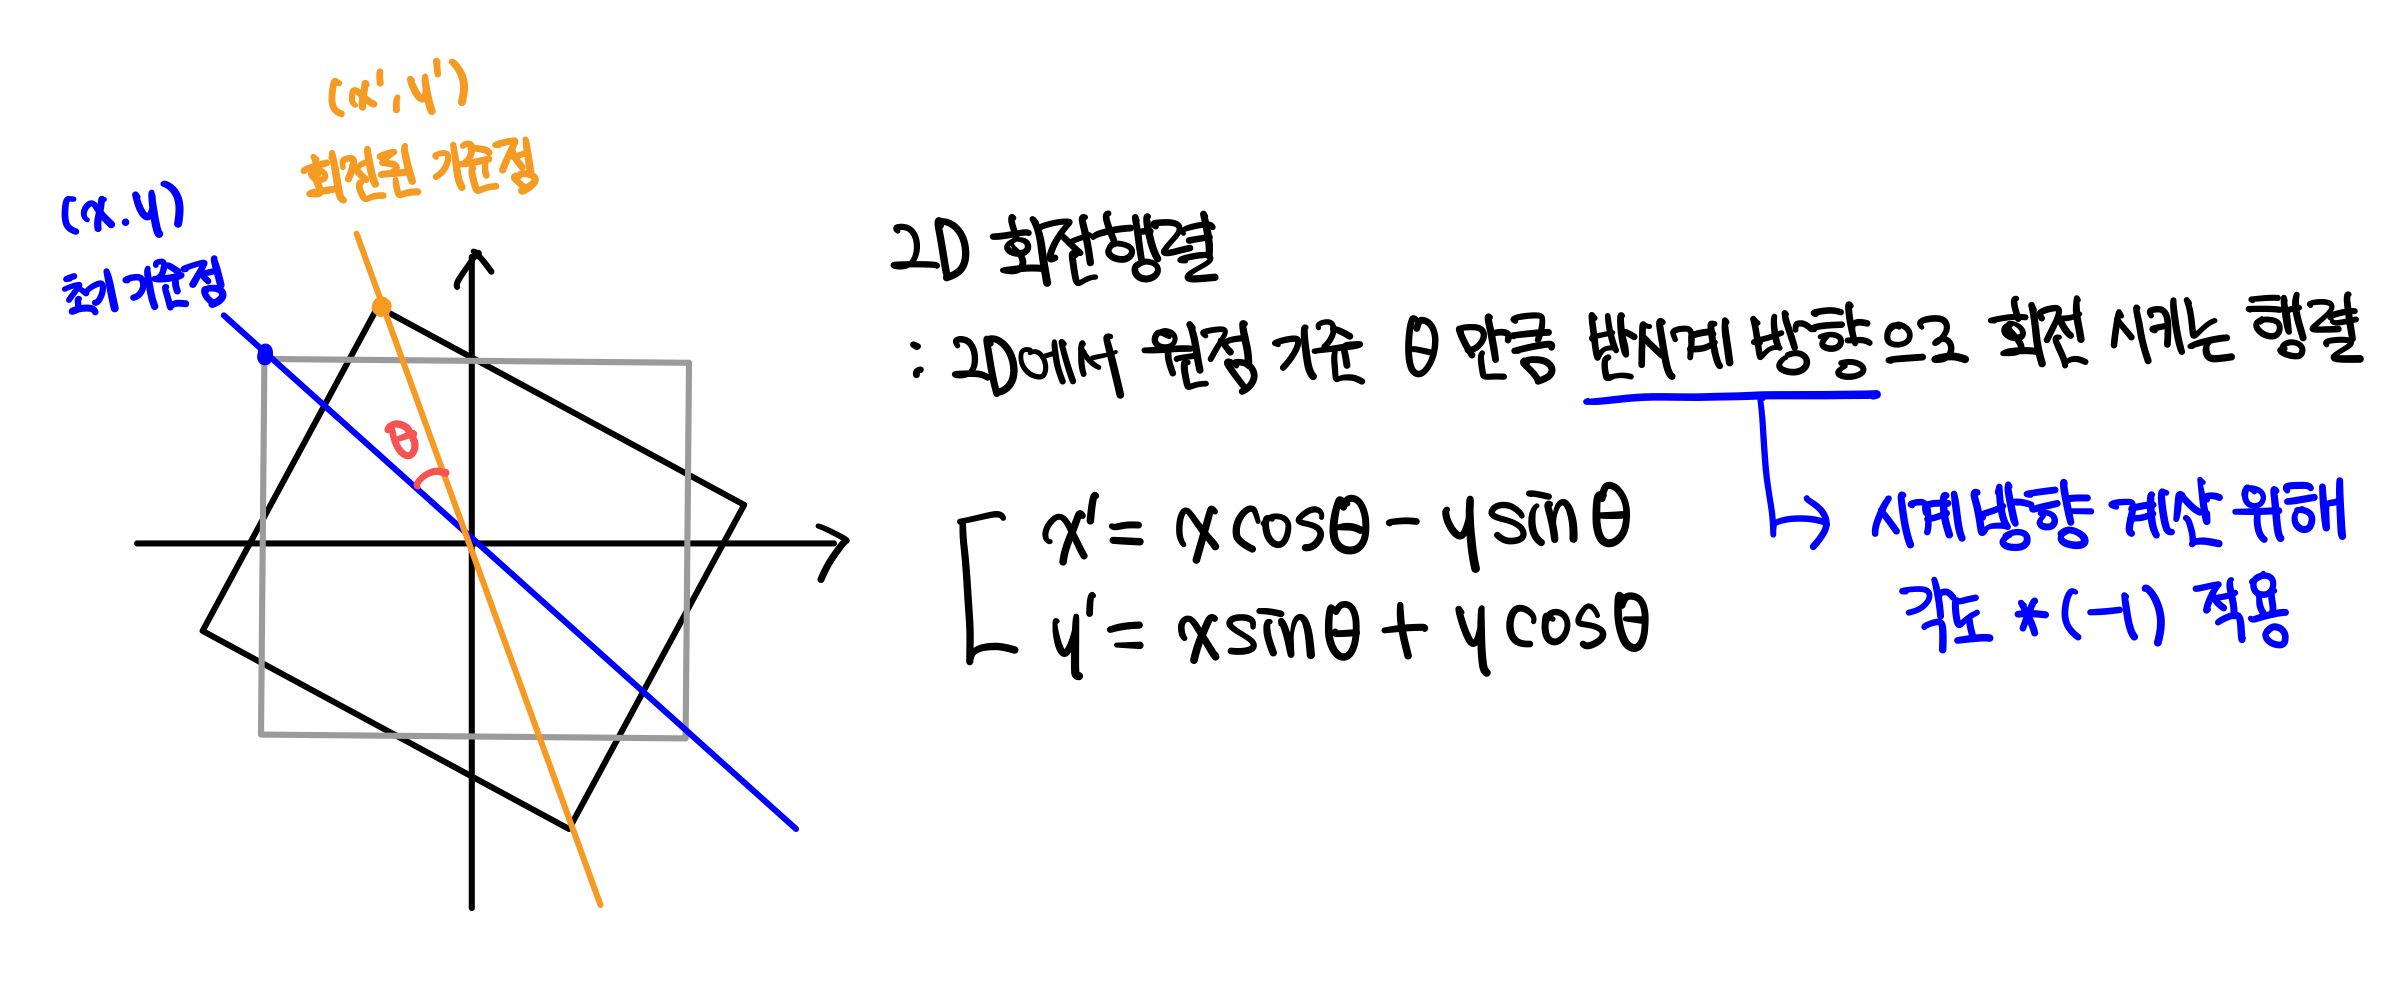 (x', y')
회전된 기준점
(x.y)
현재 기준점
θ
2D 회전행렬
: 2D에서 원점 기준 θ 만큼 반시계 방향으로 회전 시키는 행렬
x' = x cosθ - y sinθ
y' = x sinθ + y cosθ
시계방향 계산 위해
각도 * (-1) 적용